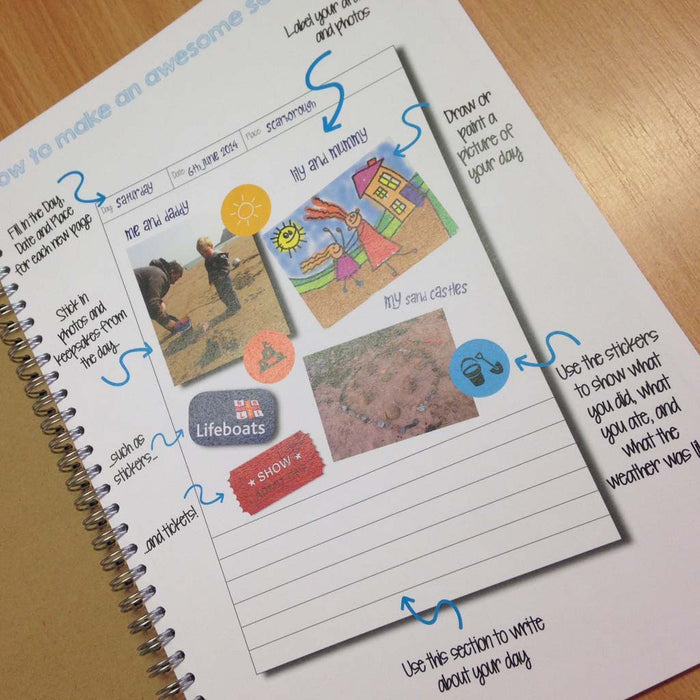 ow to make an awesome s
Label your
and photos
Draw or
paint a
picture of
your day
Fill in the Day,
Date and Place
for each new page
Day: saturday
Date: 6th June 2014
Place: scarborough
me and daddy
lily and mummy
Stick in
photos and
keepsakes from
the day...
my sand castles
Use the stickers
to show what
you did, what
you ate, and
what the
weather was
Lifeboats
...such as
stickers...
★ SHOW ★
...and tickets!
Use this section to write
about your day